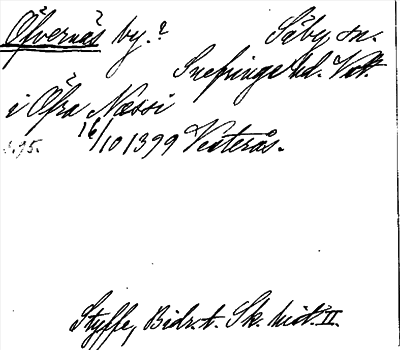 Öfvernäs by.? Säby sn.
Snefringe hd. Vstm.
i Öfra Næssi
16/10 1399 Vesterås.
s. 195.
Styffe, Bidr. t. Sk. hist. II.